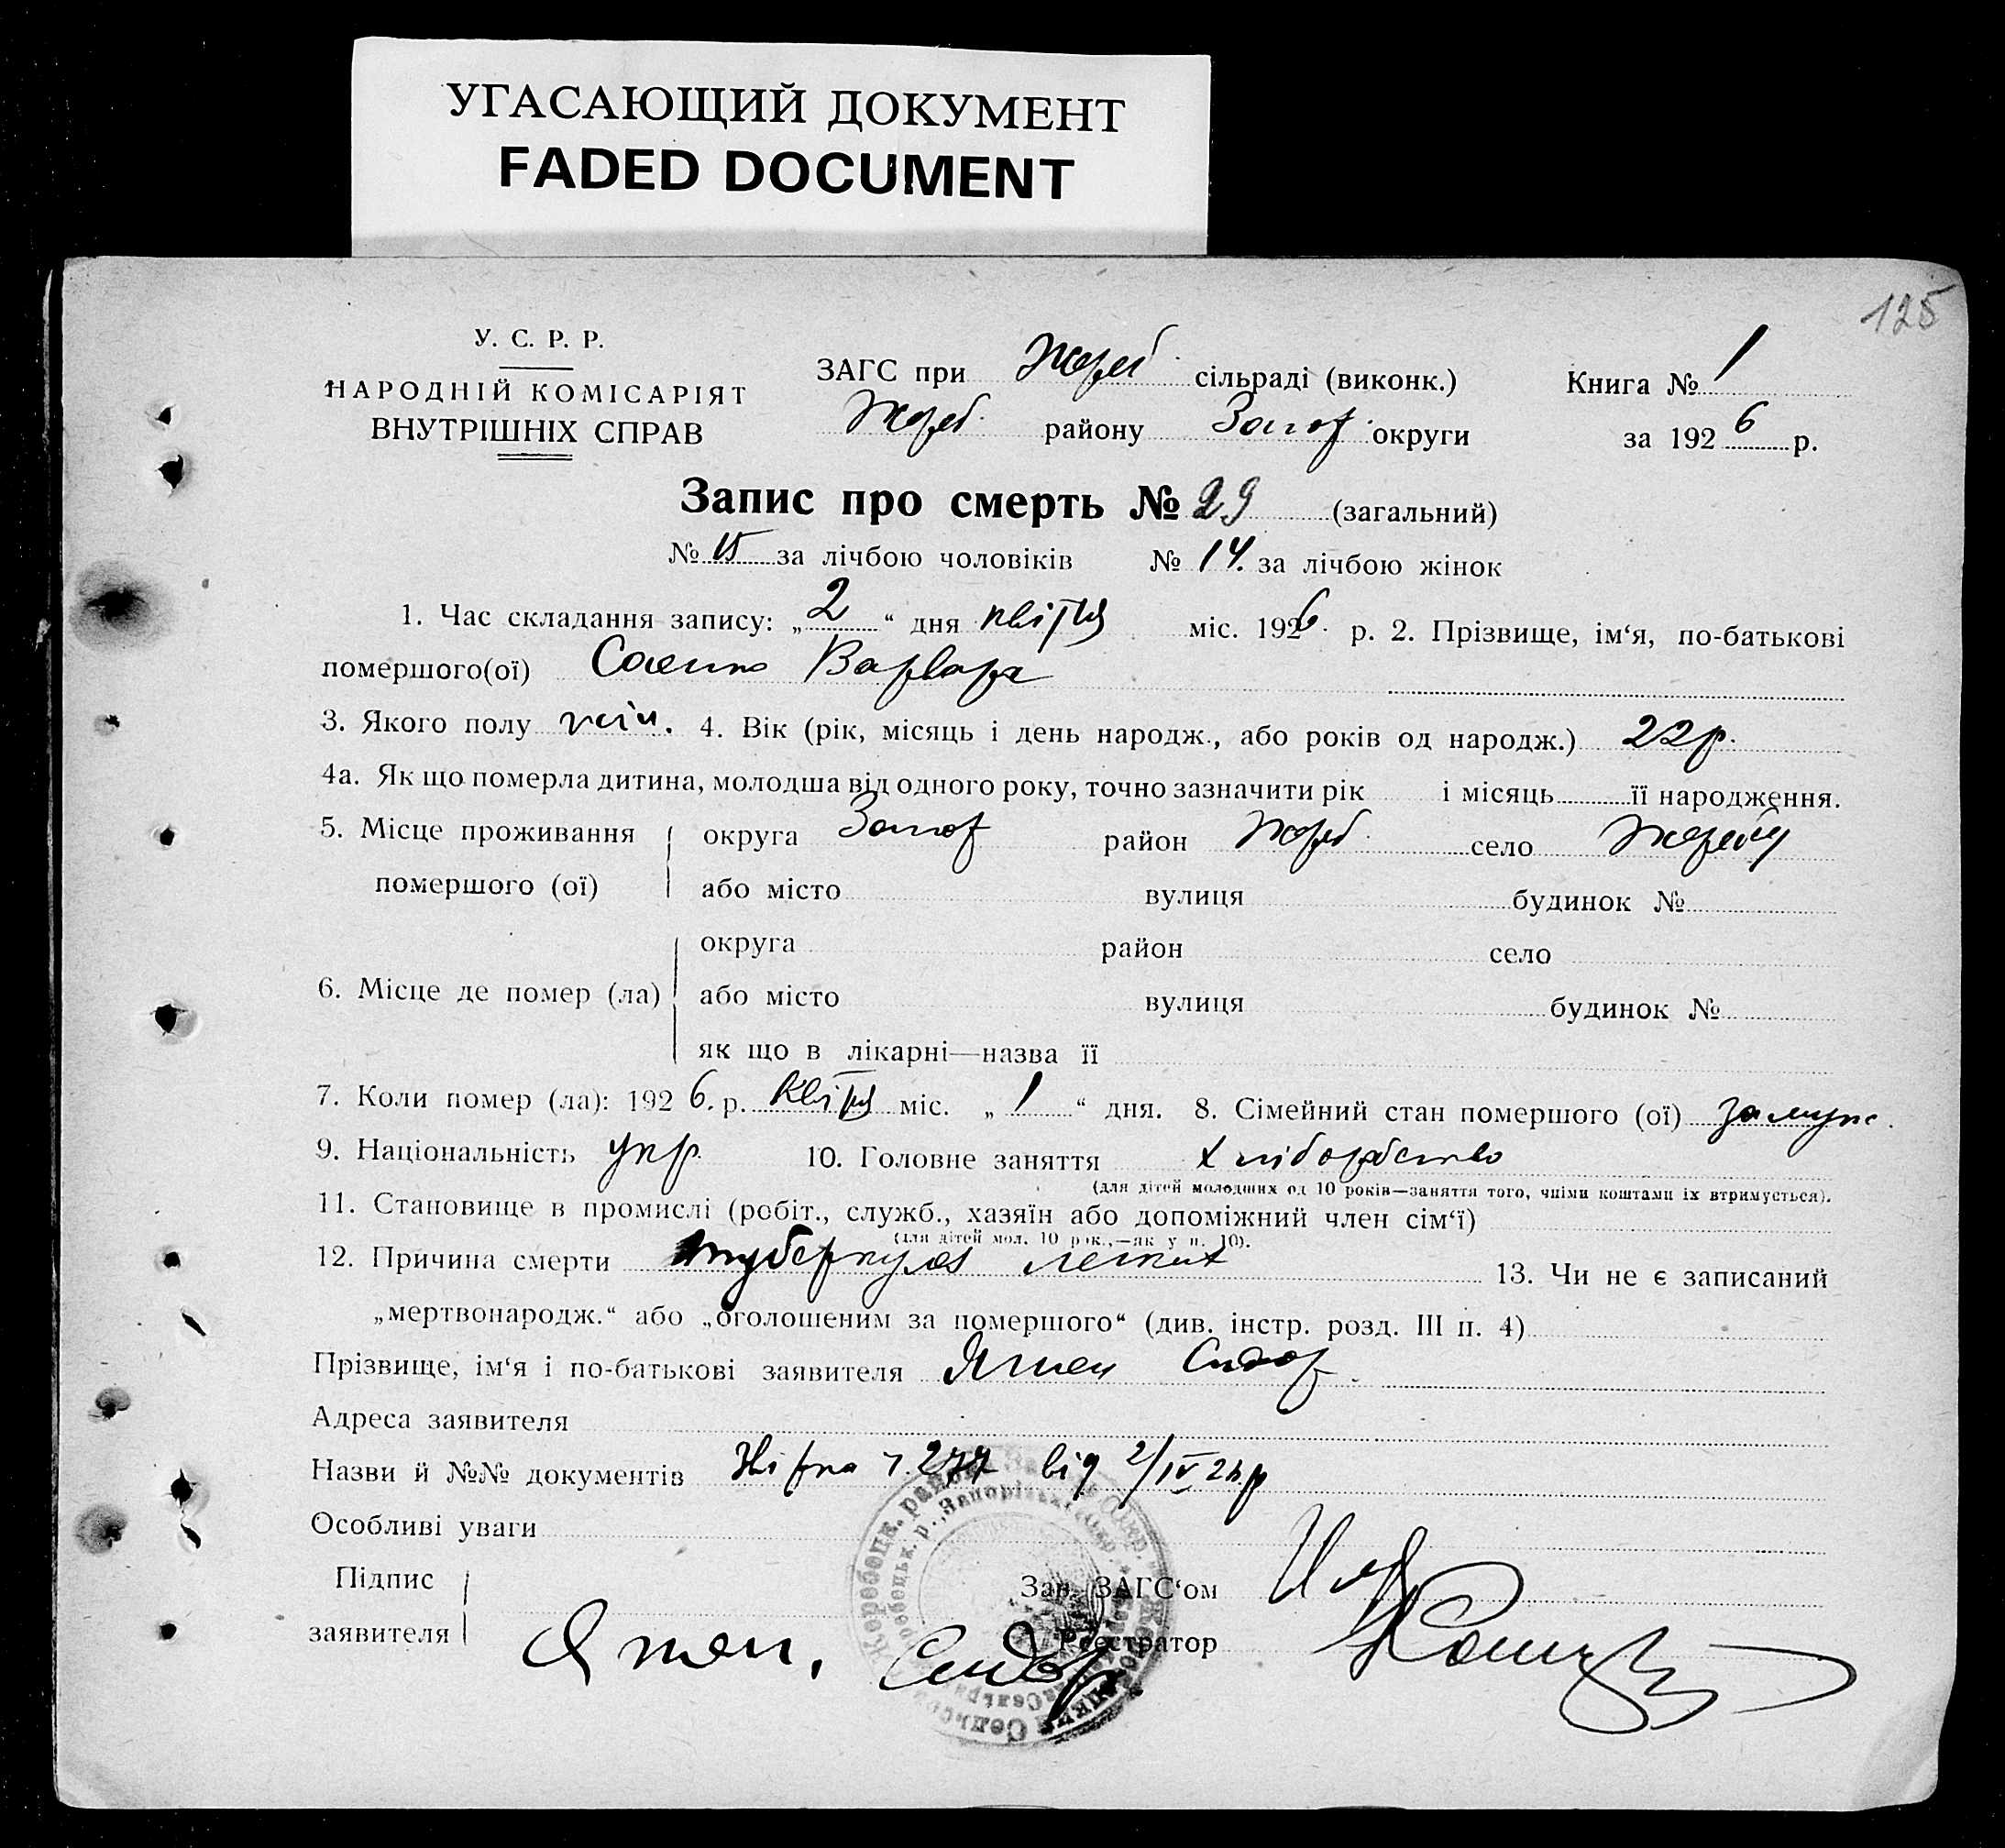 УГАСАЮЩИЙ ДОКУМЕНТ
FADED DOCUMENT
125
У. С. Р. Р.
НАРОДНІЙ КОМІСАРІЯТ
ВНУТРІШНІХ СПРАВ
ЗАГС при Жереб. сільраді (виконк.)
Жереб. району Запор. округи
Книга № 1
за 1926 р.
Запис про смерть № 29 (загальний)
№ 15 за лічбою чоловіків № 14. за лічбою жінок
1. Час складання запису: „2“ дня квітня міс. 1926. р. 2. Прізвище, ім‘я, по-батькові
помершого(ої) Саенко Варвара
3. Якого полу жін. 4. Вік (рік, місяць і день народж., або років од народж.) 22 р.
4а. Як що померла дитина, молодша від одного року, точно зазначити рік і місяць її народження.
5. Місце проживання помершого (ої) округа Запор район Жереб. село Жеребец
або місто вулиця будинок №
6. Місце де помер (ла) округа район село
або місто вулиця будинок №
як що в лікарні—назва її
7. Коли помер (ла): 1926. р. Квітня міс. „1“ дня. 8. Сімейний стан помершого (ої) замужс.
9. Національність укр. 10. Головне заняття Хліборобство
(для дітей молодших од 10 років—заняття того, чиїми коштами їх втримується).
11. Становище в промислі (робіт., служб., хазяїн або допоміжний член сім‘ї)
(для дітей мол. 10 рок.,—як у п. 10).
12. Причина смерти туберкульоз легких 13. Чи не є записаний
„мертвонародж.“ або „оголошеним за помершого“ (див. інстр. розд. III п. 4)
Прізвище, ім‘я і по-батькові заявителя Сидор
Адреса заявителя
Назви й №№ документів 277 від 2/IV 26 р
Особливі уваги
Підпис заявителя Сидор
Зав. ЗАГС‘ом
Реєстратор